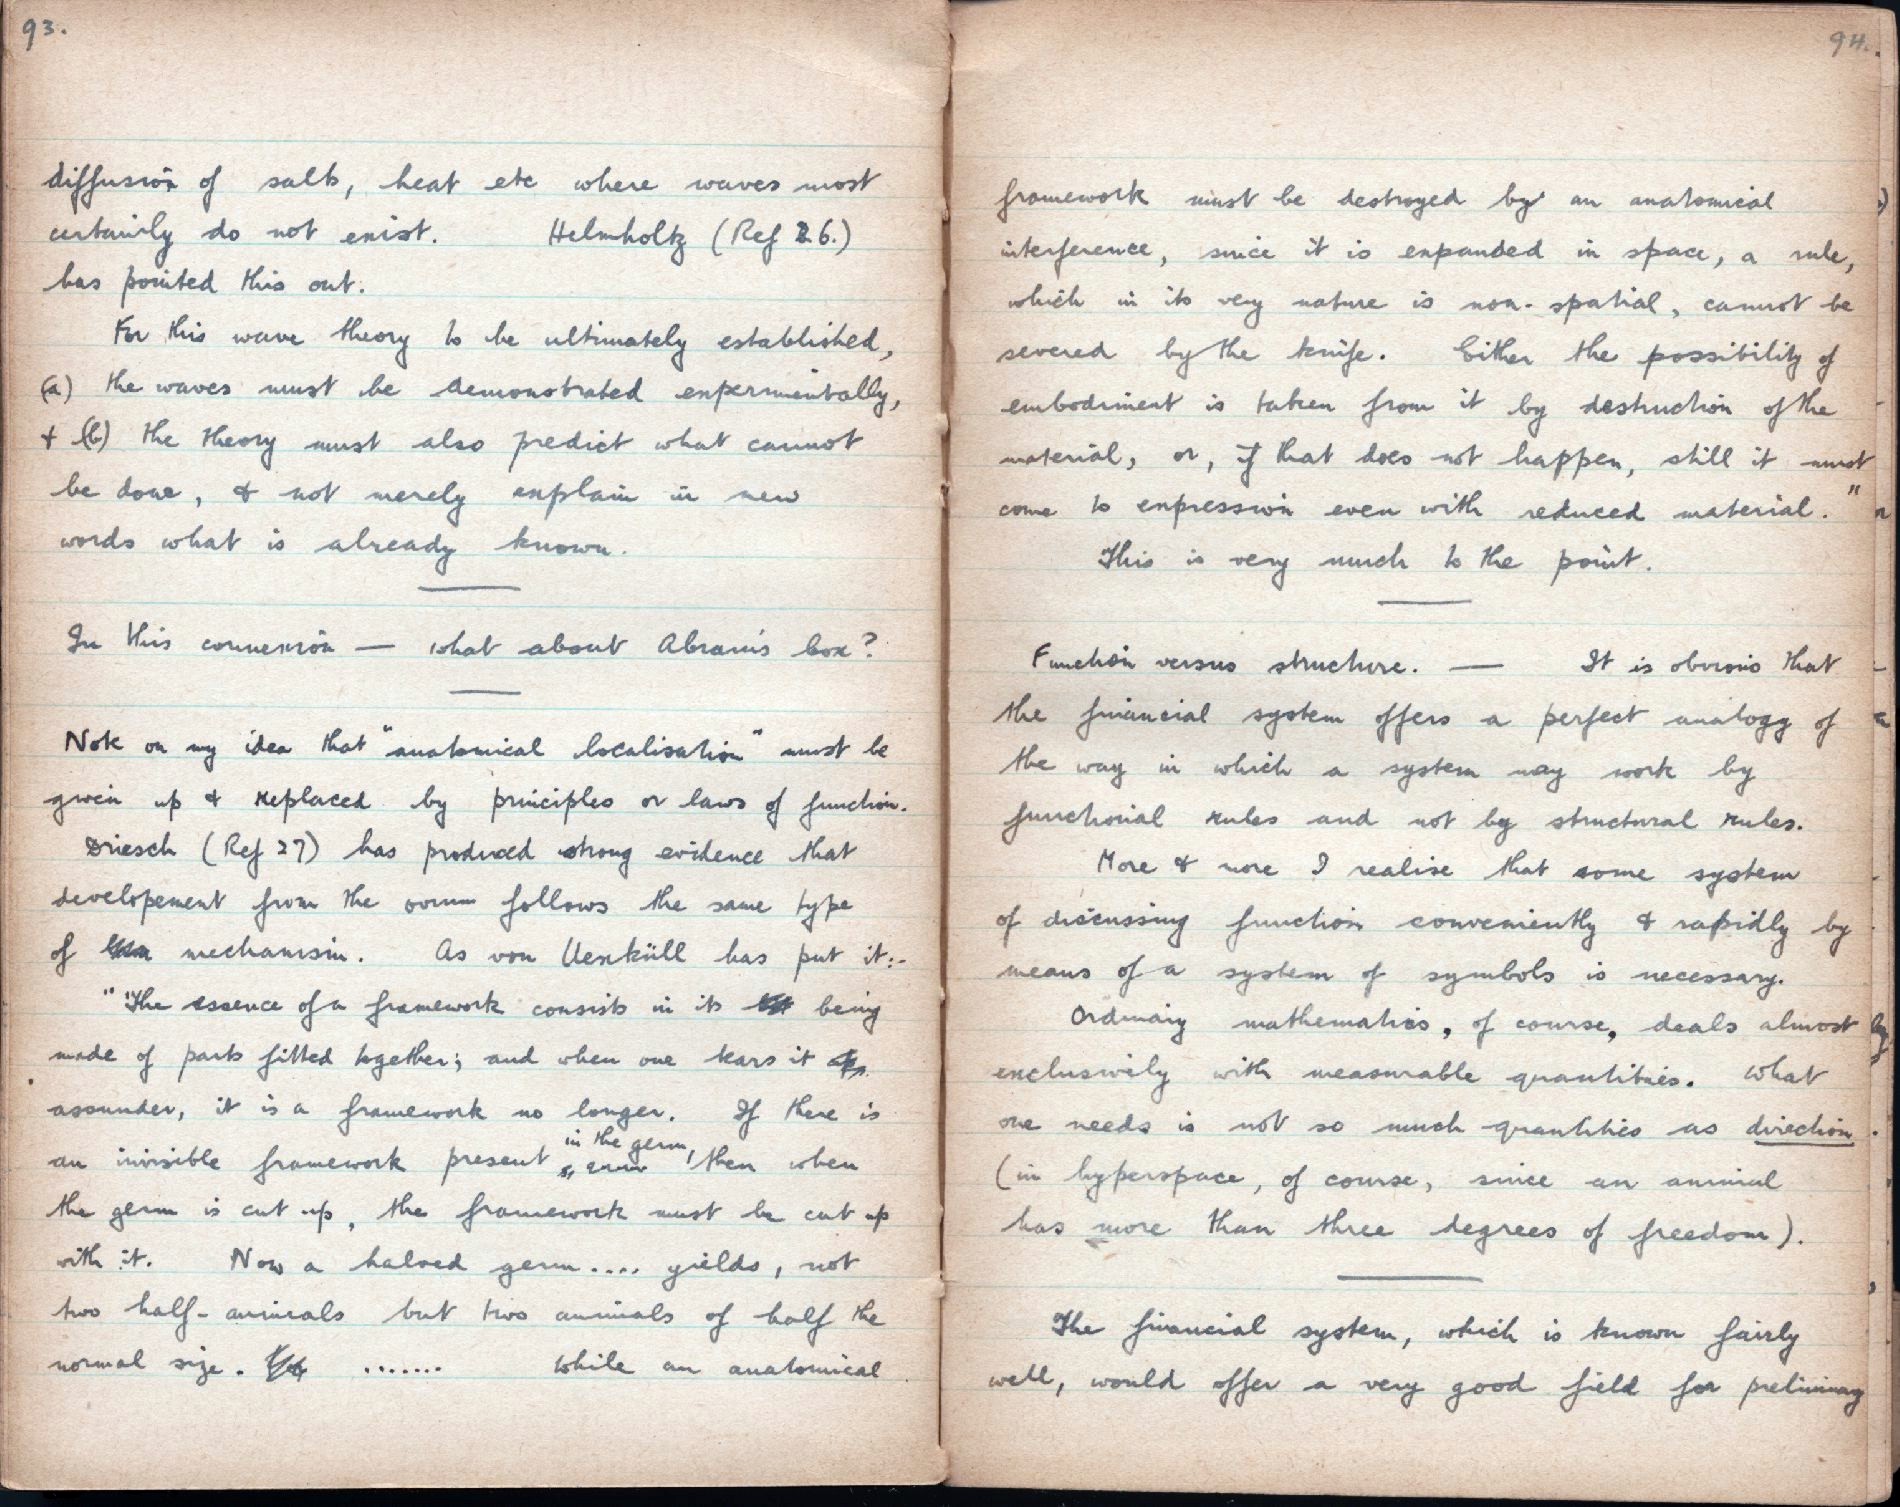 93.
diffusion of salts, heat etc where waves most
certainly do not exist. Helmholtz (Ref 26.)
has pointed this out.
For this wave theory to be ultimately established,
(a) the waves must be demonstrated experimentally,
+ (b) the theory must also predict what cannot
be done, & not merely explain in new
words what is already known.
In this connexion — what about Abram's box?
Note on my idea that "anatomical localisation" must be
given up & replaced by principles or laws of function.
Driesch (Ref 27) has produced strong evidence that
developement from the ovum follows the same type
of mechanism. As von Uexküll has put it:-
"The essence of a framework consists in its being
made of parts fitted together; and when one tears it
assunder, it is a framework no longer. If there is
an invisible framework present in the germ, then when
the germ is cut up, the framework must be cut up
with it. Now a halved germ.... yields, not
two half-animals but two animals of half the
normal size. ....... While an anatomical
94.
framework must be destroyed by an anatomical
interference, since it is expanded in space, a rule,
which in its very nature is non-spatial, cannot be
severed by the knife. Either the possibility of
embodiment is taken from it by destruction of the
material, or, if that does not happen, still it must
come to expression even with reduced material."
This is very much to the point.
Function versus structure. — It is obvious that
the financial system offers a perfect analogy of
the way in which a system may work by
functional rules and not by structural rules.
More & more I realise that some system
of discussing function conveniently & rapidly by
means of a system of symbols is necessary.
Ordinary mathematics, of course, deals almost
exclusively with measurable quantities. What
one needs is not so much quantities as direction.
(in hyperspace, of course, since an animal
has more than three degrees of freedom).
The financial system, which is known fairly
well, would offer a very good field for preliminary